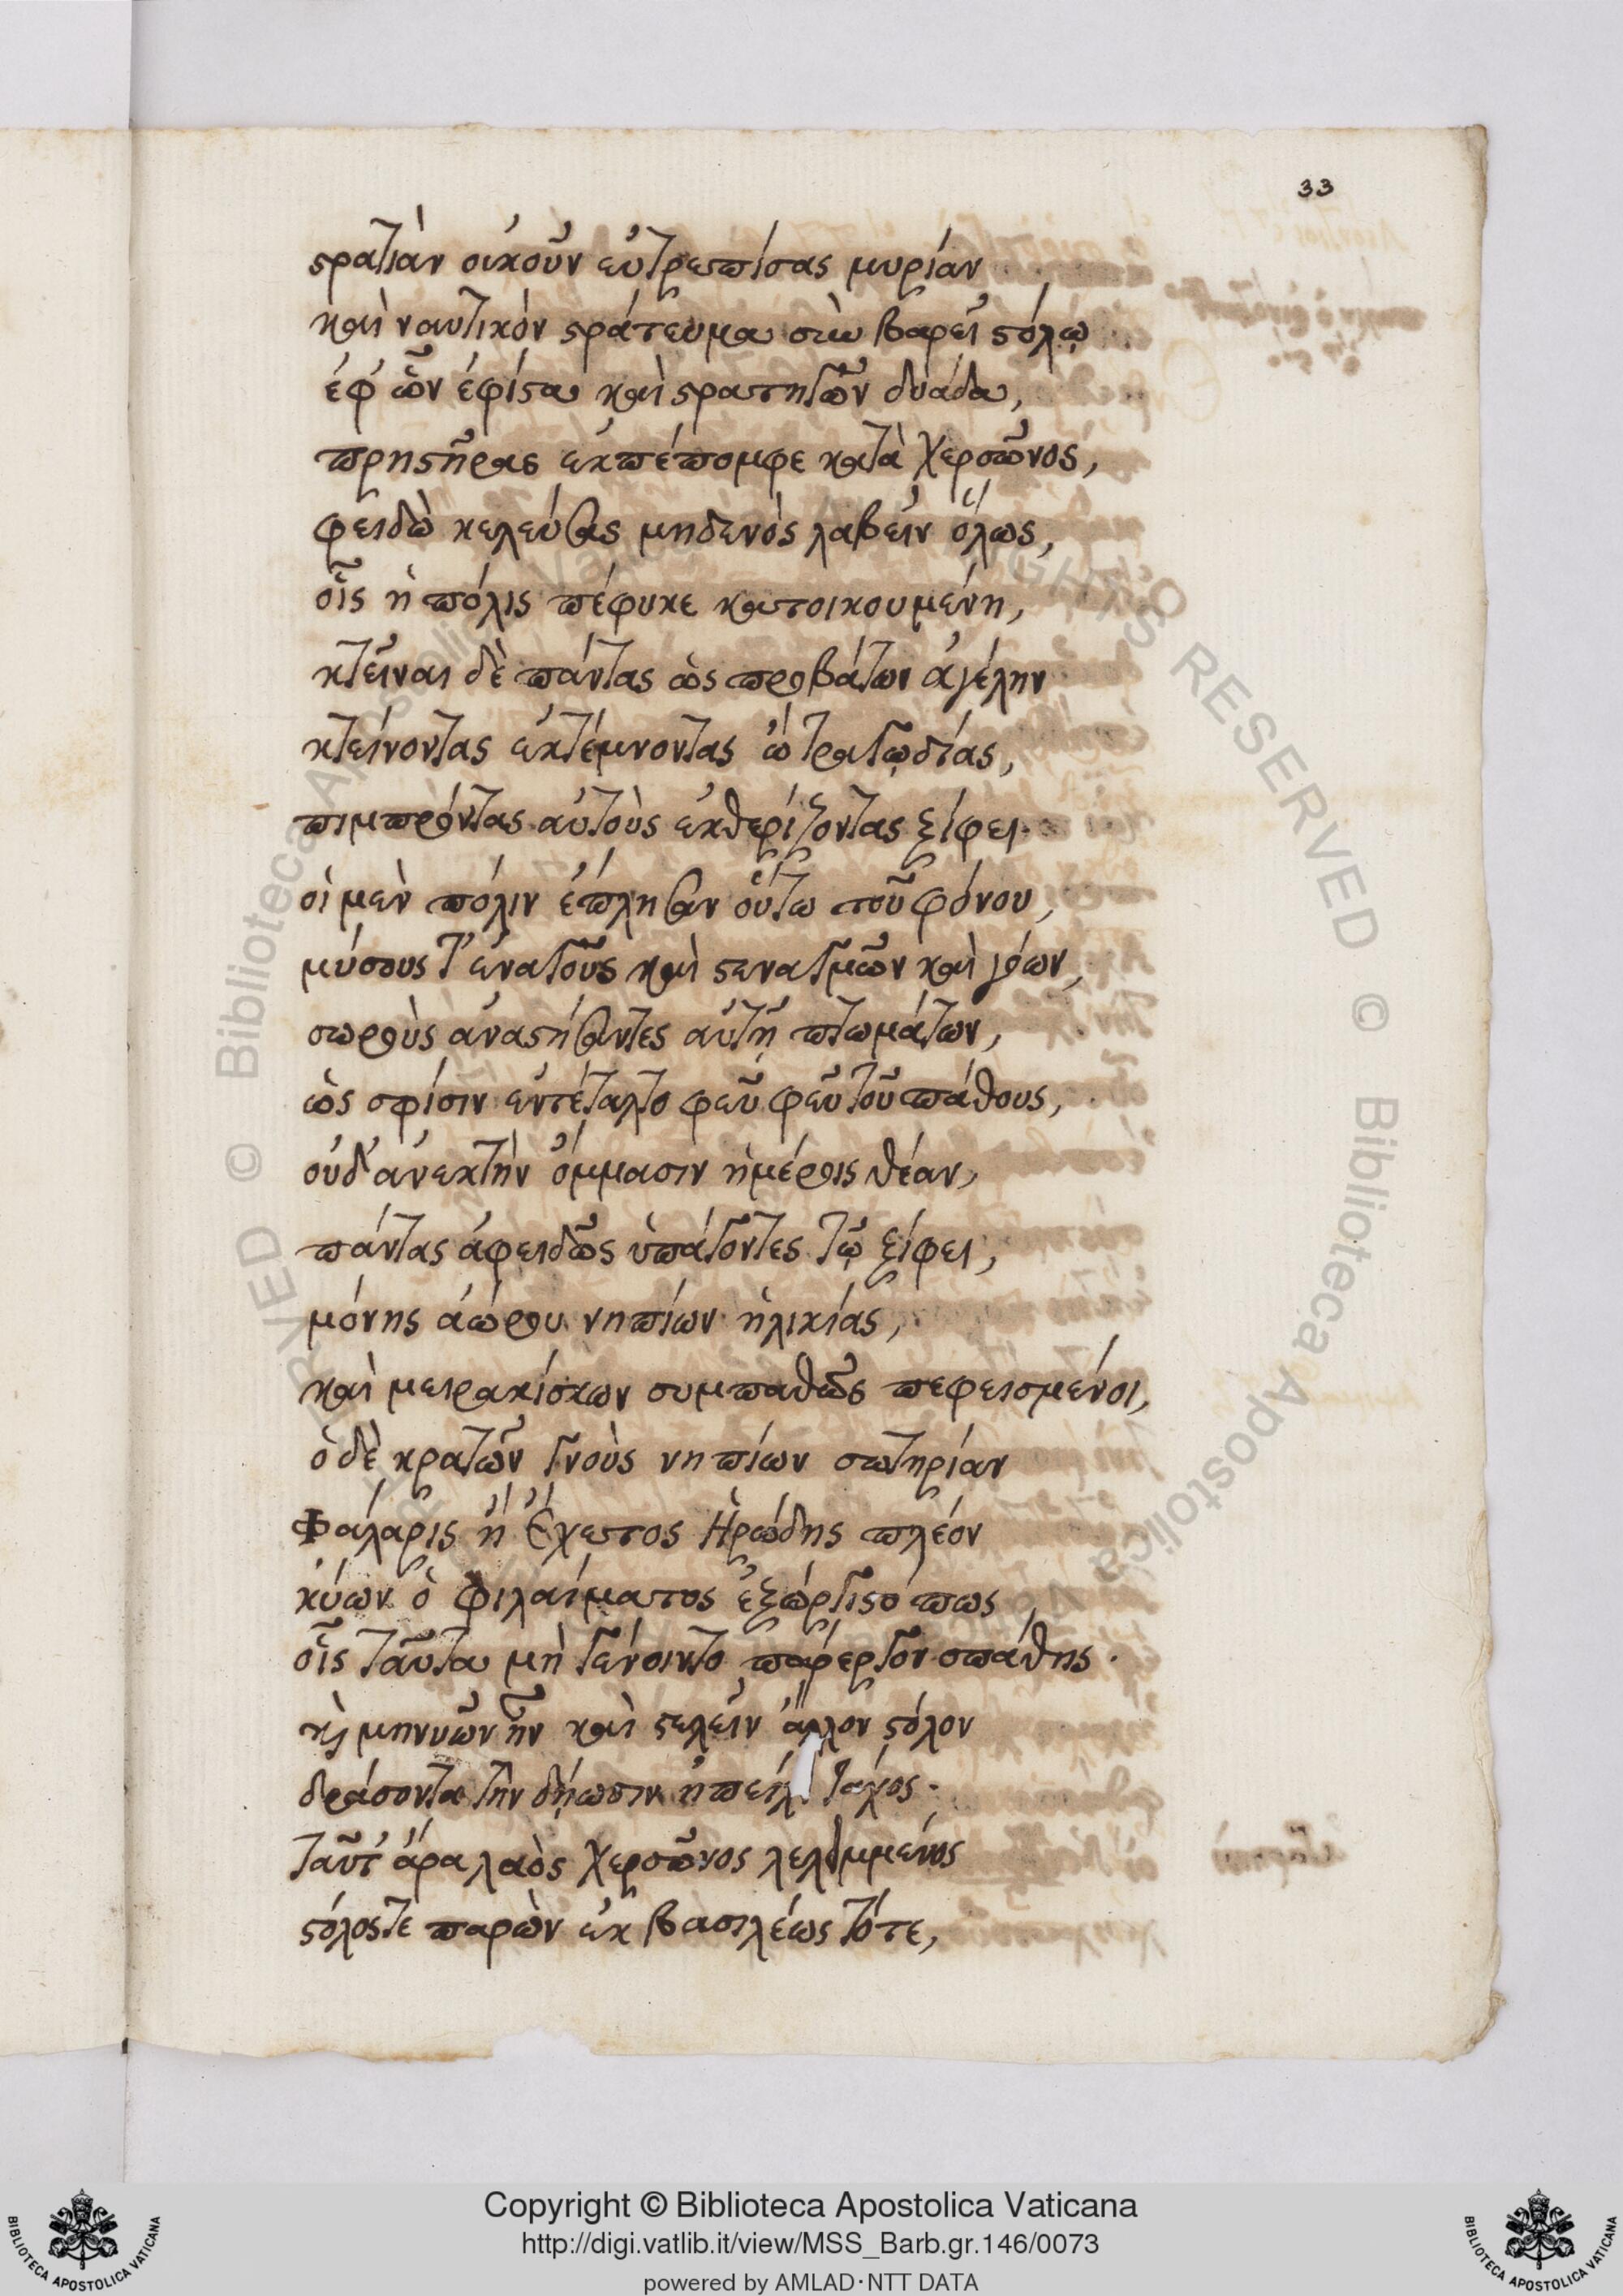 33
στρατιὰν οἰκοῦν εὐτρεπίσας μυρίαν
καὶ ναυτικὸν στράτευμα σὺν βαρεῖ στόλῳ
ἐφ' ὧν ἐφίστα καὶ στρατηγῶν δυάδα,
πρηστῆρας ἐκπέπομφε κατὰ Χερσῶνος,
φειδὼ κελεύσας μηδενὸς λαβεῖν ὅλως,
οἷς ἡ πόλις πέφυκε κατοικουμένη,
κτεῖναι δὲ πάντας ὡς προβάτων ἀγέλην
κτείνοντας ἐκτέμνοντας ὢ τραγῳδίας,
πιμπρόντας αὐτοὺς ἐκθερίζοντας ξίφει.
οἱ μὲν πόλιν ἔπλησαν οὕτω τοῦ φόνου,
μύσους τ' ἐναγοῦς καὶ στεναγμῶν καὶ γόων,
σωροὺς ἀναστήσαντες αὐτῇ πτωμάτων,
ὡς σφίσιν ἐντέταλτο φεῦ φεῦ τοῦ πάθους,
οὐδ' ἀνεκτὴν ὄμμασιν ἡμέροις θέαν,
πάντας ἀφειδῶς ὑπάγοντες τῷ ξίφει,
μόνης ἀώρου νηπίων ἡλικίας,
καὶ μειρακίσκων συμπαθῶς πεφεισμένοι,
ὁ δὲ κρατῶν γνοὺς νηπίων σωτηρίαν
Φάλαρις ἢ Ἔχετος Ἡρώδης πλέον
κύων ὁ φιλαίματος ἐξώργιστό πως
οἷς ταῦτα μὴ γένοιντο πάρεργον σπάθης.
κ μηνυῶν ἦν καὶ στελεῖν ἄλλον στόλον
δράσοντα τὴν δῄωσιν ἠπείλει τάχος.
ταῦτ' ἄρα λαὸς Χερσῶνος λελειμμένος
στόλος τε παρὼν ἐκ βασιλέως τότε,
© Biblioteca Apostolica Vaticana
RIGHTS RESERVED
Copyright © Biblioteca Apostolica Vaticana
http://digi.vatlib.it/view/MSS_Barb.gr.146/0073
powered by AMLAD·NTT DATA
BIBLIOTECA APOSTOLICA VATICANA
BIBLIOTECA APOSTOLICA VATICANA